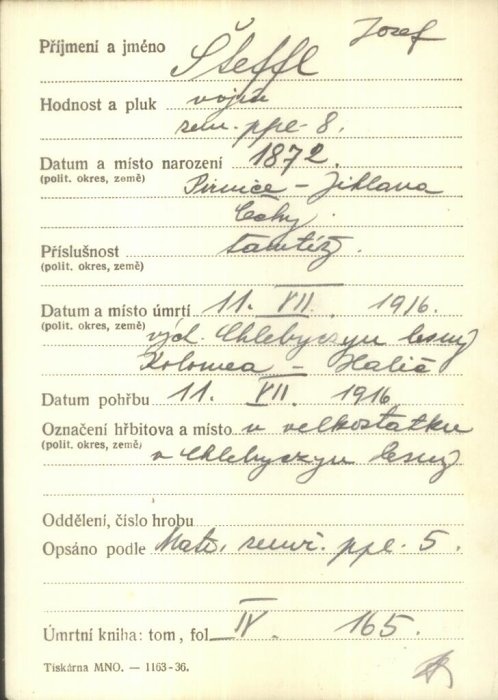 Příjmení a jméno Šteffl Josef
Hodnost a pluk vojín
zem. ppl. 8.
Datum a místo narození 1872.
(polit. okres, země) Pirnice - Jihlava
Čechy.
Příslušnost tamtéž.
(polit. okres, země)
Datum a místo úmrtí 11. VII. 1916.
(polit. okres, země) vých. Chlebyczyn lesny
Kolomea - Halič
Datum pohřbu 11. VII. 1916
Označení hřbitova a místo u velkostatku
(polit. okres, země) v Chlebyczyn lesny
Oddělení, číslo hrobu
Opsáno podle Matr. zemř. ppl. 5.
Úmrtní kniha: tom, fol. IV. 165.
Tiskárna MNO. — 1163-36.